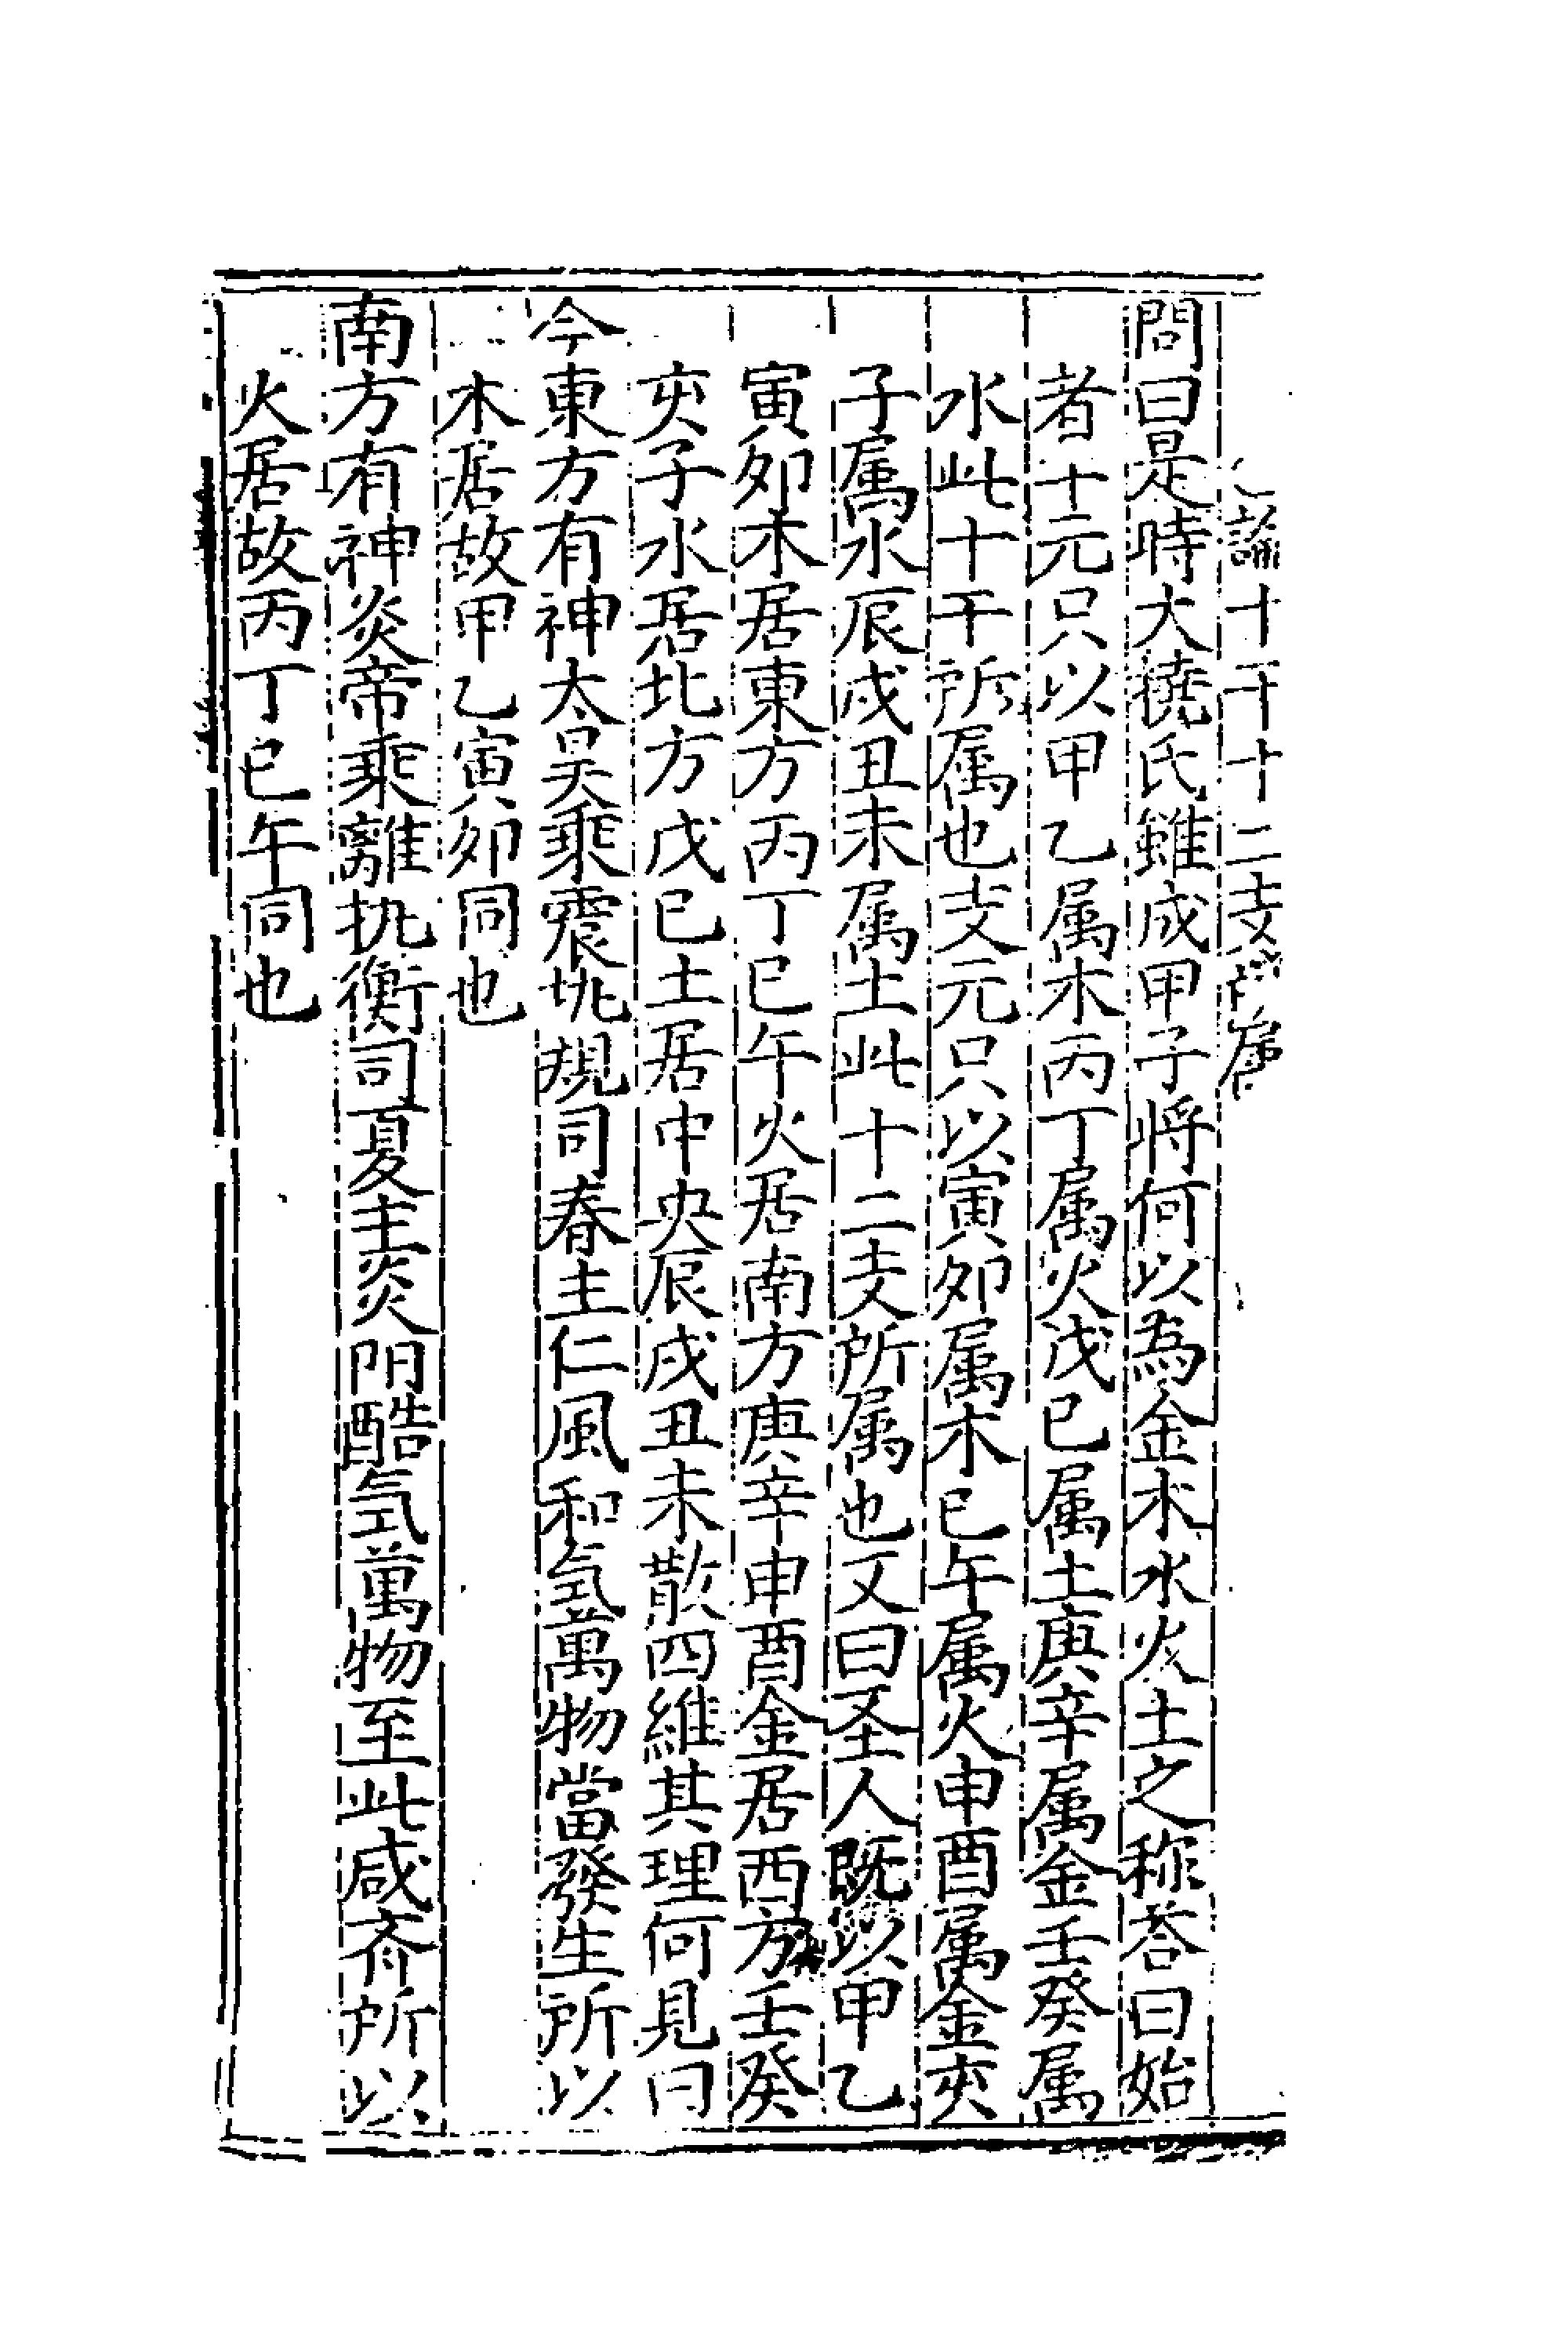 論十干十二支所屬
問曰是時大撓氏雖成甲子將何以為金木水火土之称荅曰始
者十元只以甲乙属木丙丁属火戊巳属土庚辛属金壬癸属
水此十干所属也支元只以寅夘属木巳午属火申酉属金亥
子属水辰戌丑未属土此十二支所属也又曰圣人既以甲乙
寅夘木居東方丙丁巳午火居南方庚辛申酉金居西方壬癸
亥子水居北方戊巳土居中央辰戌丑未散四維其理何見曰
今東方有神太昊乘震执規司春主仁風和氣萬物當發生所以
木居故甲乙寅夘同也
南方有神炎帝乘離执衡司夏主炎阳酷氣萬物至此咸齐所以
火居故丙丁巳午同也